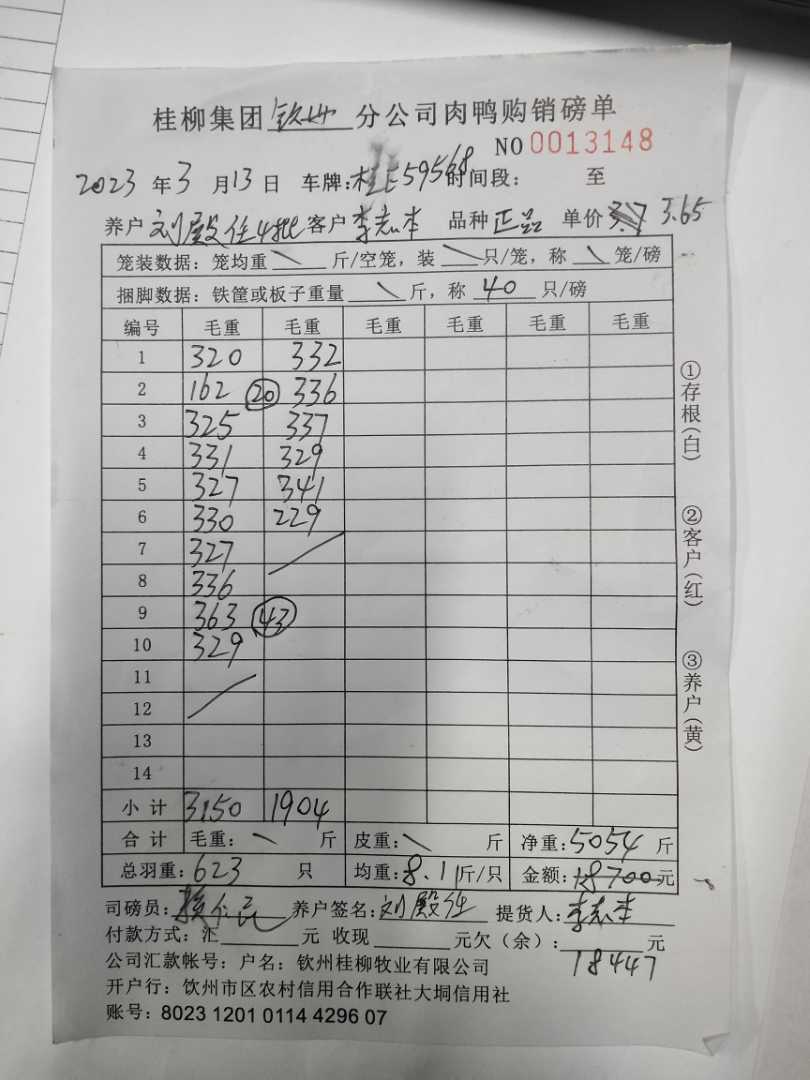 桂柳集团 钦州 分公司肉鸭购销磅单
NO 0013148
2023 年 3 月 13 日 车牌: 59568 时间段: 至
养户 刘殿任4批 客户 李志本 品种 正品 单价 3.65
笼装数据: 笼均重 \ 斤/空笼, 装 \ 只/笼, 称 \ 笼/磅
捆脚数据: 铁筐或板子重量 \ 斤, 称 40 只/磅
编号 毛重 毛重 毛重 毛重 毛重 毛重
1 320 332
2 162 ⑳ 336
3 325 337
4 331 329
5 327 341
6 330 229
7 327
8 336
9 363 ㊸
10 329
11
12
13
14
小计 3150 1904
合计 毛重: \ 斤 皮重: \ 斤 净重: 5054 斤
总羽重: 623 只 均重: 8.11 斤/只 金额: 18700 元
司磅员: 养户签名: 刘殿任 提货人: 李志本
付款方式: 汇 元 收现 元欠(余): 元
18447
公司汇款帐号: 户名: 钦州桂柳牧业有限公司
开户行: 钦州市区农村信用合作联社大垌信用社
账号: 8023 1201 0114 4296 07
①存根(白)
②客户(红)
③养户(黄)